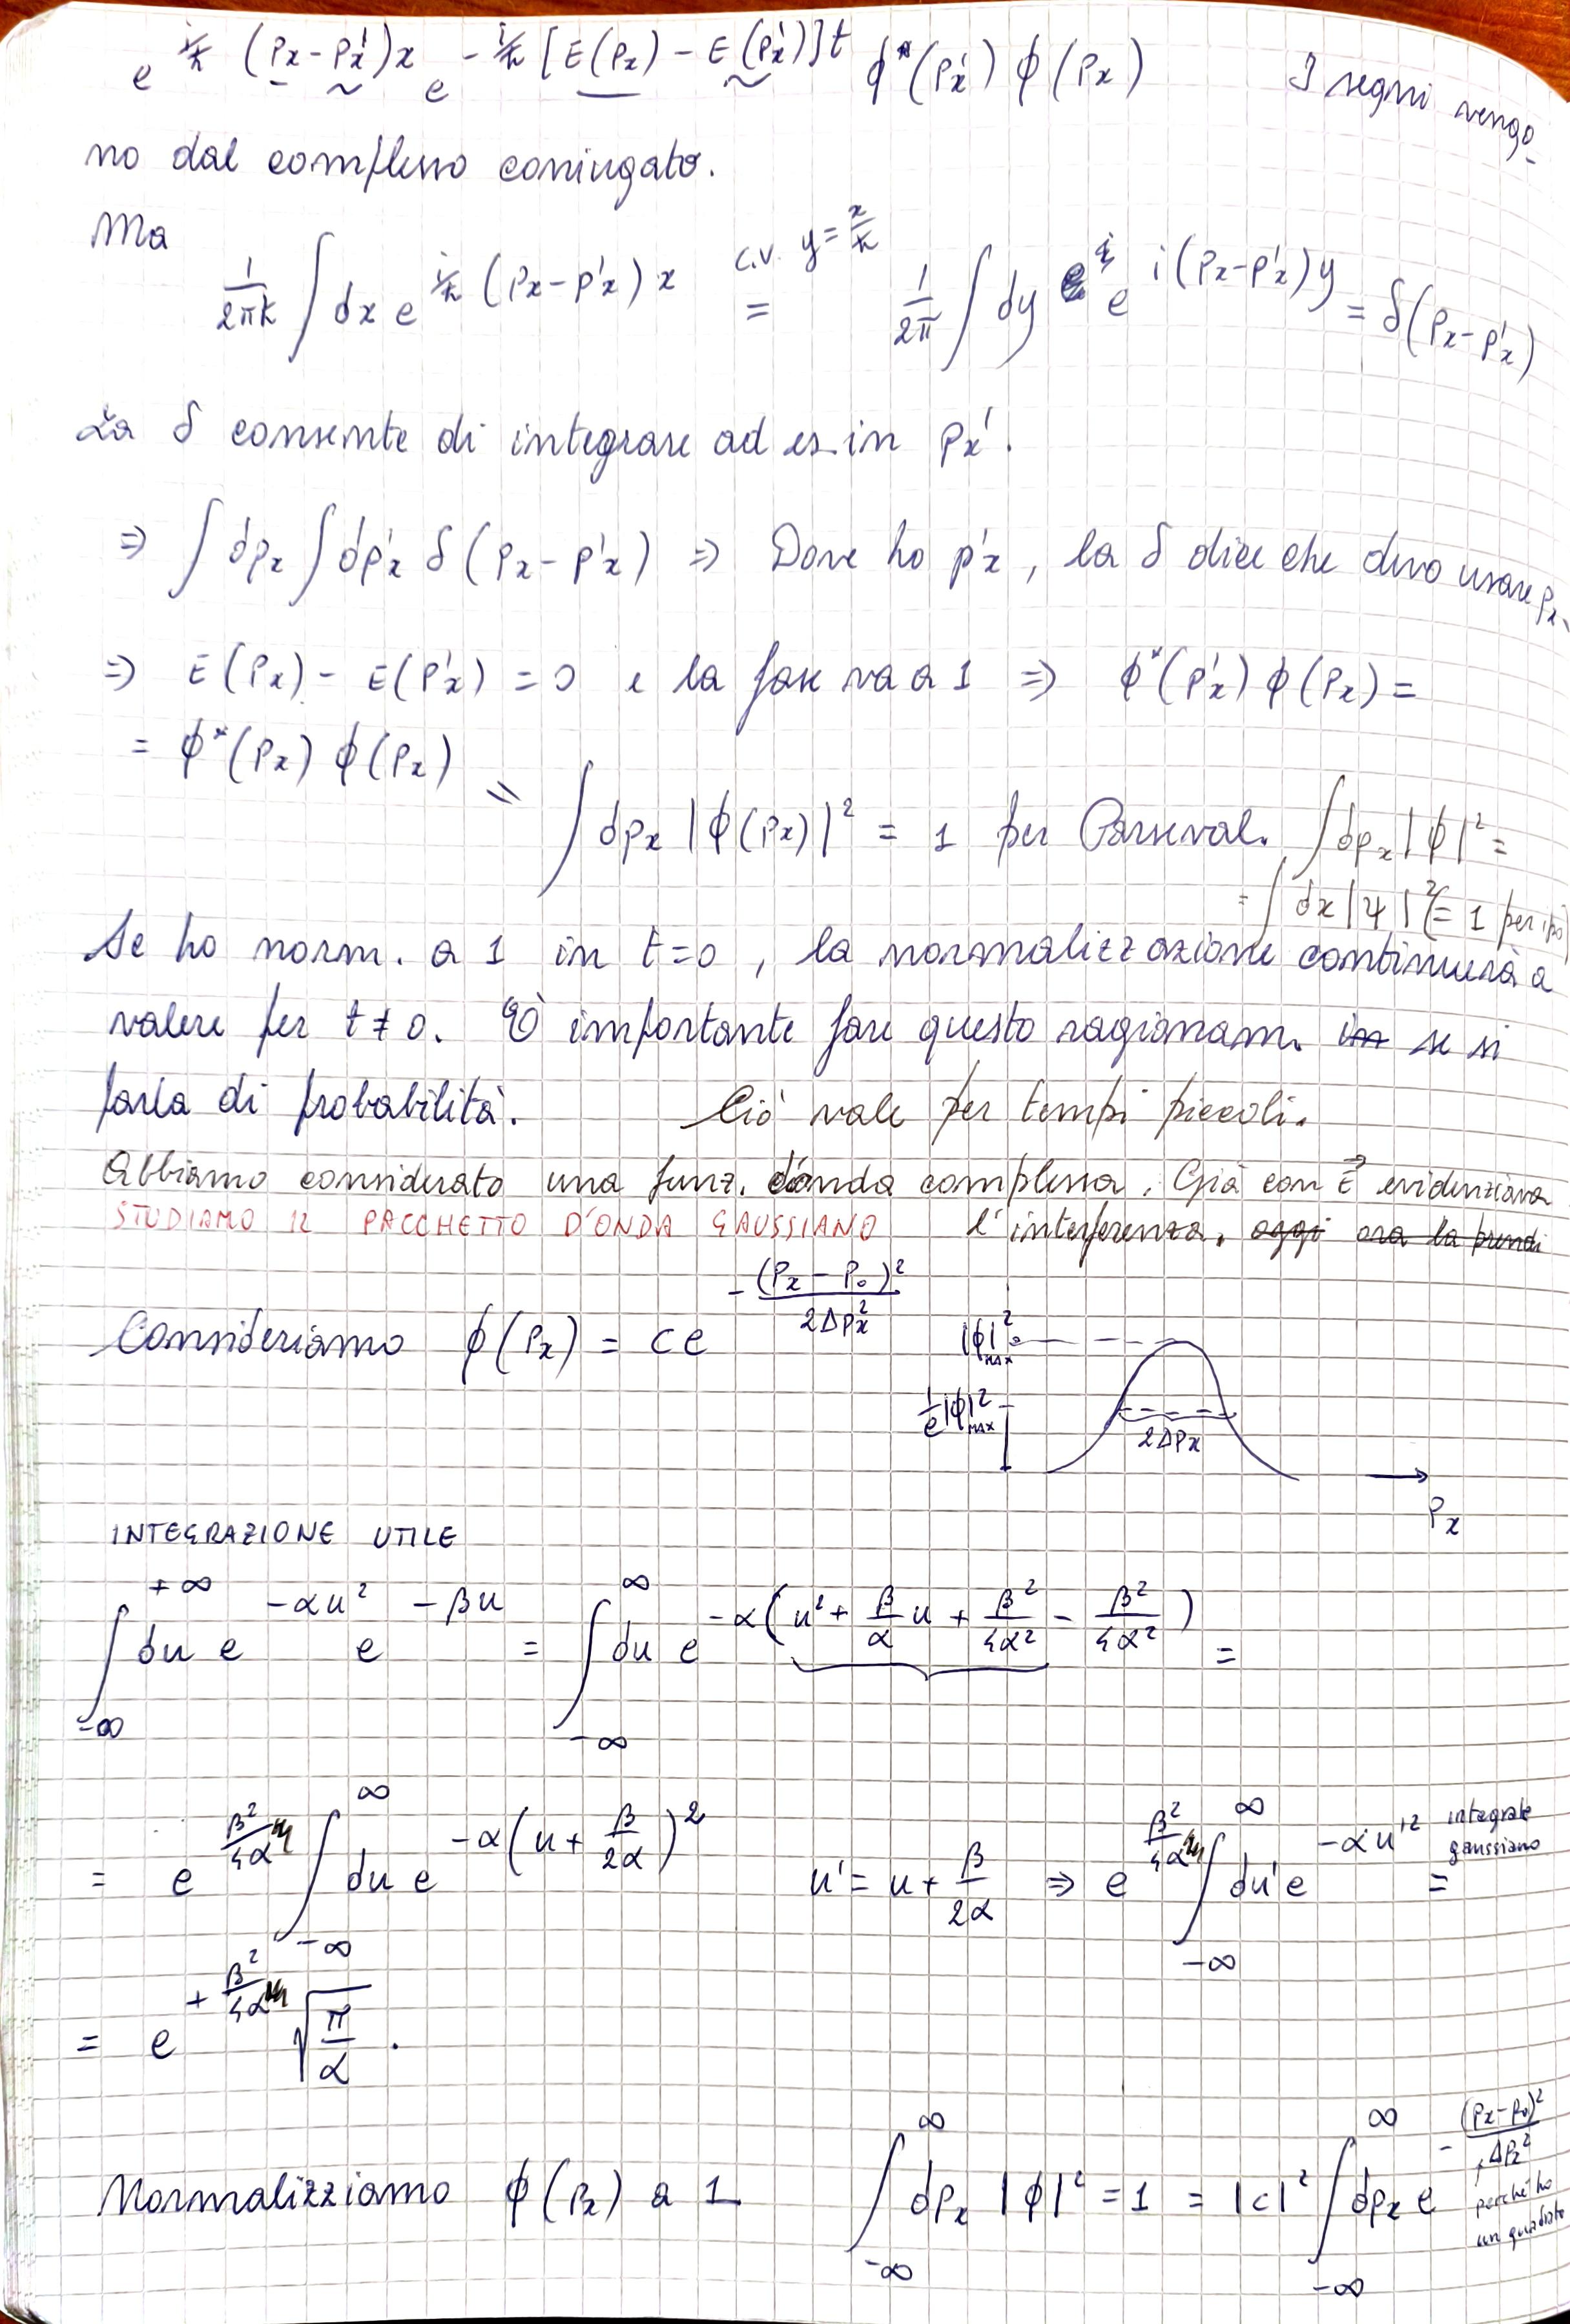 e^{i/ħ (Px-P'x)x} e^{-i/ħ [E(Px) - E(P'x)]t} ϕ*(P'x) ϕ(Px) I segni vengo-
no dal complesso coniugato.
Ma
1/2πħ ∫ dx e^{i/ħ (Px-P'x)x} = c.v. y = x/ħ 1/2π ∫ dy e^{i(Px-P'x)y} = δ(Px-P'x)
La δ consente di integrare ad es. in Px'.
⇒ ∫ dpx ∫ dp'x δ(Px-P'x) ⇒ Dove ho p'x, la δ dice che devo usare Px.
⇒ E(Px) - E(P'x) = 0 e la fase va a 1 ⇒ ϕ*(P'x) ϕ(Px) =
= ϕ*(Px) ϕ(Px)
= ∫ dpx |ϕ(Px)|² = 1 per Parseval. ∫ dpx |ϕ|² =
= ∫ dx |ψ|² (= 1 per ipo)
Se ho norm. a 1 in t=0, la normalizzazione continuerà a
valere per t ≠ 0. È importante fare questo ragionam. in se si
parla di probabilità. Ciò vale per tempi piccoli.
Abbiamo considerato una funz. d'onda complessa. Già con E⃗ evidenziava
STUDIAMO IL PACCHETTO D'ONDA GAUSSIANO l'interferenza. oggi ora la prendi
Consideriamo ϕ(Px) = c e^{-(Px-P₀)²/2ΔPx²}
|ϕ|²MAX
1/e |ϕ|²MAX
2ΔPx
Px
INTEGRAZIONE UTILE
∫_{-∞}^{+∞} du e^{-αu²} e^{-βu} = ∫_{-∞}^{∞} du e^{-α(u² + β/α u + β²/4α² - β²/4α²)} =
= e^{β²/4α} ∫_{-∞}^{∞} du e^{-α(u + β/2α)²} u' = u + β/2α ⇒ e^{β²/4α} ∫_{-∞}^{∞} du' e^{-αu'²} = integrale gaussiano
= e^{+β²/4α} √(π/α) .
Normalizziamo ϕ(Px) a 1 ∫_{-∞}^{∞} dpx |ϕ|² = 1 = |c|² ∫_{-∞}^{∞} dpx e^{-(Px-P₀)²/ΔPx²}
perché ho
un quadrato